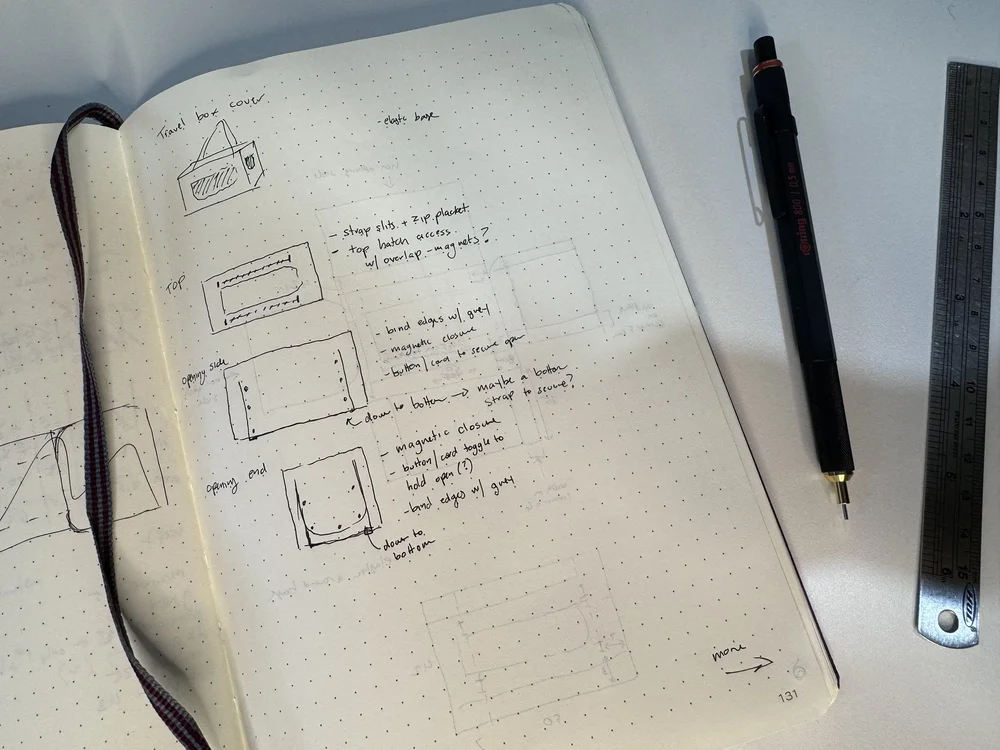 Travel box cover
- elastic base
TOP
- strap slits + zip placket
- top hatch access
w/ overlap - magnets?
opening side
- bind edges w/ grey
- magnetic closure
- button/cord to secure open
down to bottom → maybe a bottom
strap to secure?
opening end
- magnetic closure
- button/cord toggle to
hold open (?)
- bind edges w/ grey
down to
bottom
more
131
rotring 800 | 0.5 mm
1
2
3
4
5
6
15